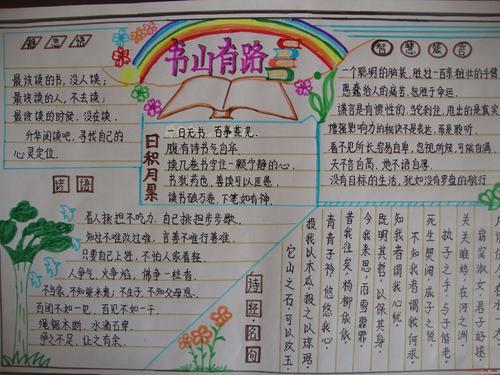 书山有路
最该读的书，没人读；
最该读的人，不去读；
最该读的时候，没在读。
升华阅读吧，寻找自己的
心灵定位。
智慧慧言
一个聪明的脑袋，胜过一百条粗壮的手臂
愚蠢给人的痛苦，甚于命运。
谎言是有惯性的，当它刹住，甩出的是真实
增强影响力的秘诀不是表达，而是聆听。
看不见所长，容易自卑，忽视所短，可能自满。
天不言自高，地不语自厚。
没有目标的生活，犹如没有罗盘的航行
日积月累
一日无书，百事荒芜。
腹有诗书气自华
读书破万卷，下笔如有神。
书犹药也，善读可以医愚。
谚语
看人挑担不吃力，自己挑担步步歇。
知过不难改过难，言善不难行善难。
只要自己上进，不怕人家看轻。
人争气，火争焰，佛争一柱香。
不当家，不知柴米贵；不生子，不知父母恩。
百闻不如一见，百见不如一干。
绳锯木断，水滴石穿。
争之不足，让之有余。
诗经名句
窈窕淑女，君子好逑
关关雎鸠，在河之洲
执子之手，与子偕老
死生契阔，与子成说
不知我者谓我何求
知我者谓我心忧
既明其哲，以保其身
今我来思，雨雪霏霏
昔我往矣，杨柳依依
青青子衿，悠悠我心
投我以木瓜，报之以琼琚
它山之石，可以攻玉